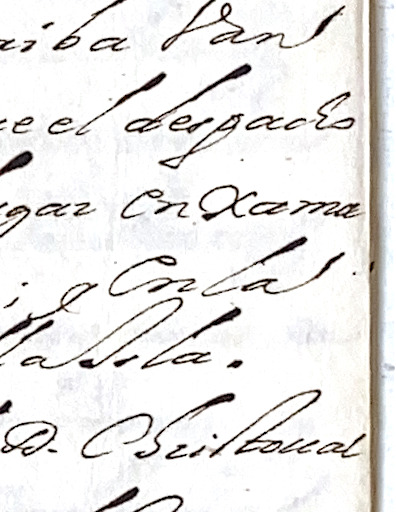 aiba Van
e el despacho
gar en Xama
i, e En la
la Isla.
D. Christoual